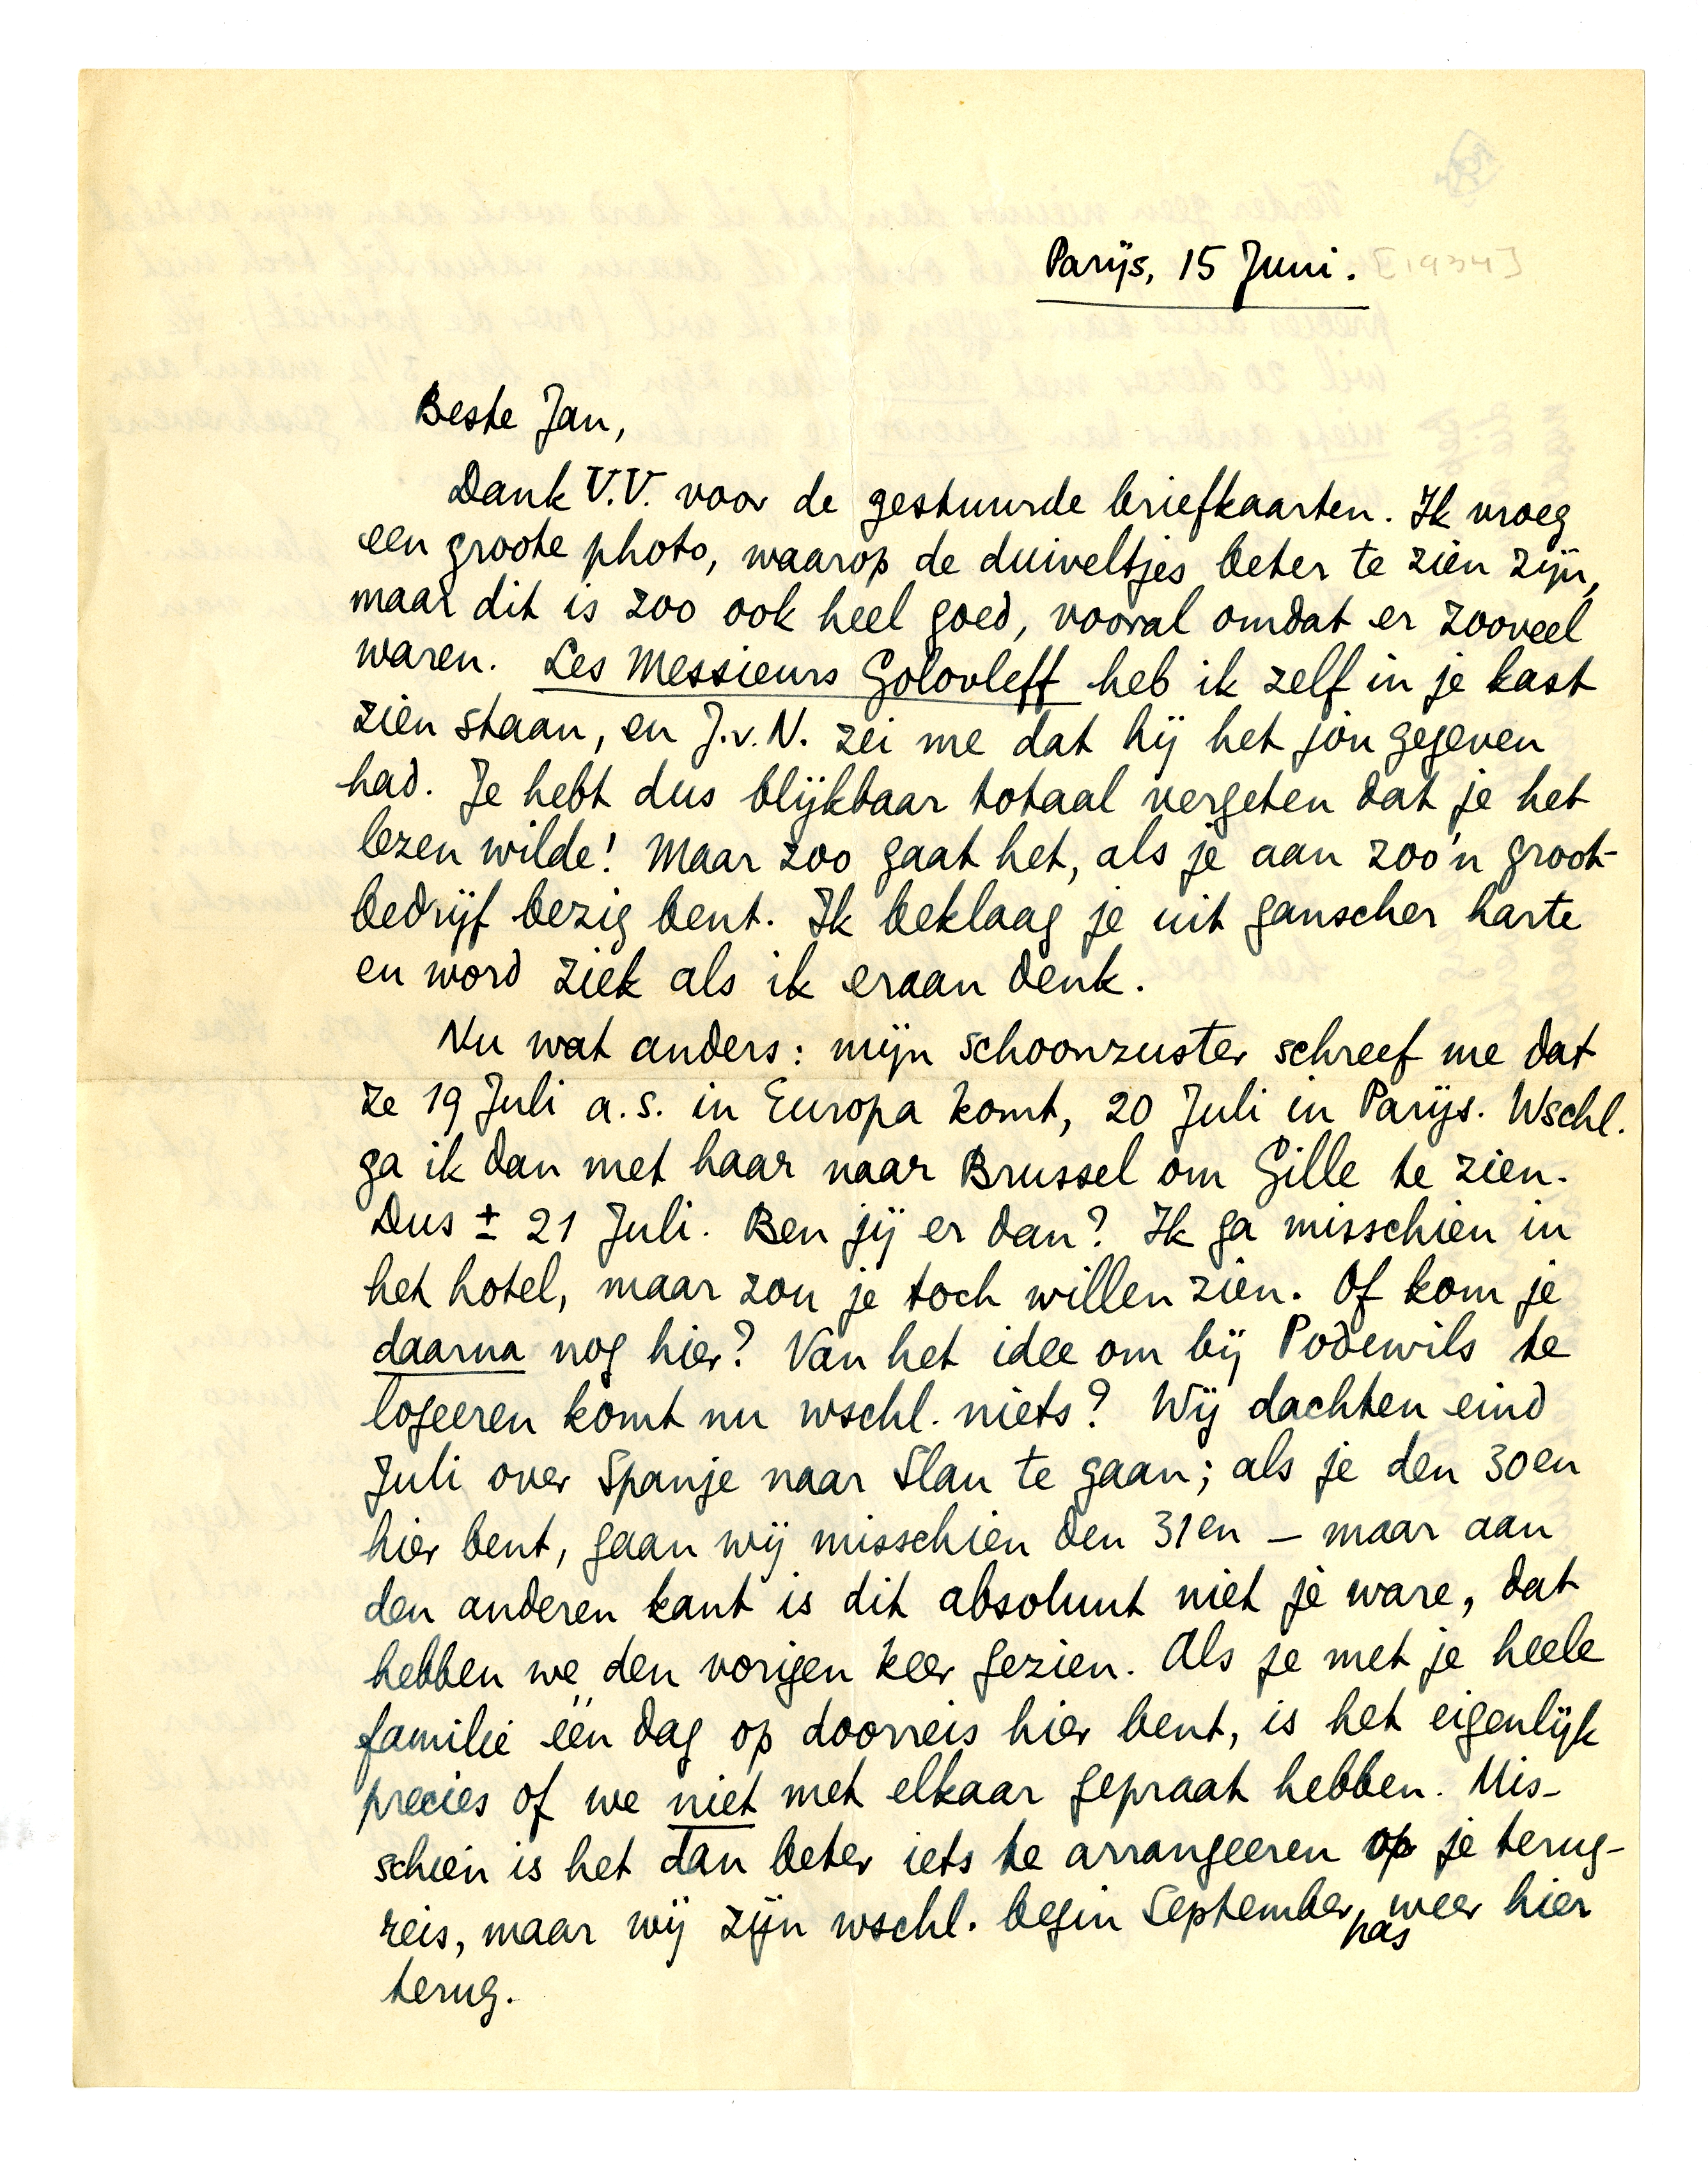 Parijs, 15 Juni. [1934]
Beste Jan,
Dank V.V. voor de gestuurde briefkaarten. Ik vroeg
een groote photo, waarop de duiveltjes beter te zien zijn,
maar dit is zoo ook heel goed, vooral omdat er zooveel
waren. Les Messieurs Golovleff heb ik zelf in je kast
zien staan, en J.v.N. zei me dat hij het jou gegeven
had. Je hebt dus blijkbaar totaal vergeten dat je het
lezen wilde! Maar zoo gaat het, als je aan zoo'n groot-
bedrijf bezig bent. Ik beklaag je uit ganscher harte
en word ziek als ik eraan denk.
Nu wat anders: mijn schoonzuster schreef me dat
ze 19 Juli a.s. in Europa komt, 20 Juli in Parijs. Wschl.
ga ik dan met haar naar Brussel om Gille te zien.
Dus ± 21 Juli. Ben jij er dan? Ik ga misschien in
het hotel, maar zou je toch willen zien. Of kom je
daarna nog hier? Van het idee om bij Podewils te
logeeren komt nu wschl. niets? Wij dachten eind
Juli over Spanje naar Slau te gaan; als je den 30en
hier bent, gaan wij misschien den 31en – maar aan
den anderen kant is dit absoluut niet je ware, dat
hebben we den vorigen keer gezien. Als je met je heele
familie één dag op doorreis hier bent, is het eigenlijk
precies of we niet met elkaar gepraat hebben. Mis-
schien is het dan beter iets te arrangeeren op je terug-
reis, maar wij zijn wschl. begin September pas weer hier
terug.